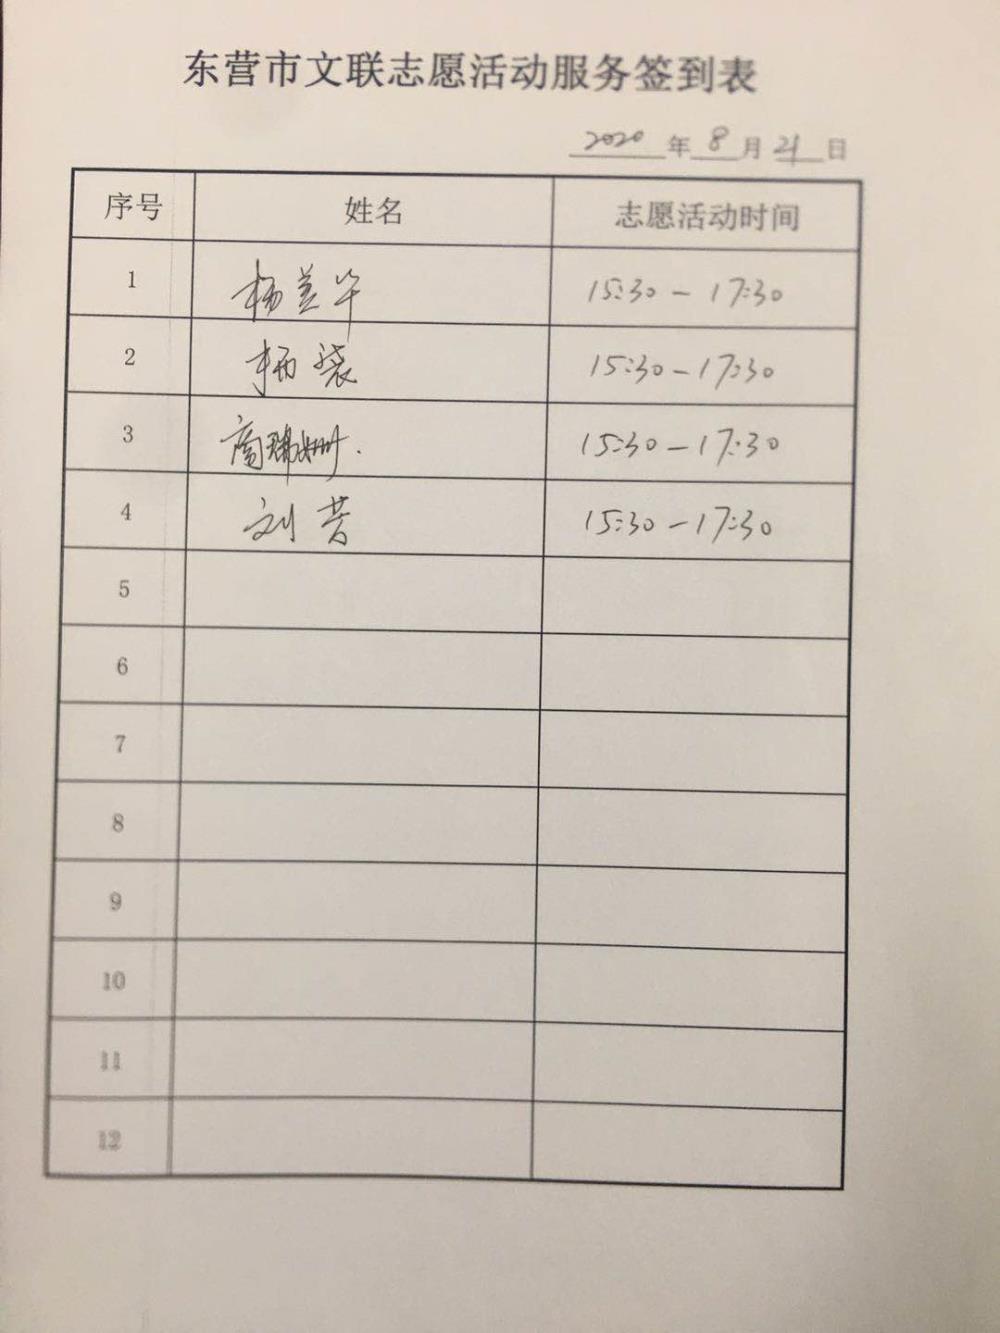 东营市文联志愿活动服务签到表
2020 年 8 月 21 日
序号 姓名 志愿活动时间
1 杨美华 15:30-17:30
2 15:30-17:30
3 商瑞珊. 15:30-17:30
4 刘芳 15:30-17:30
5
6
7
8
9
10
11
12